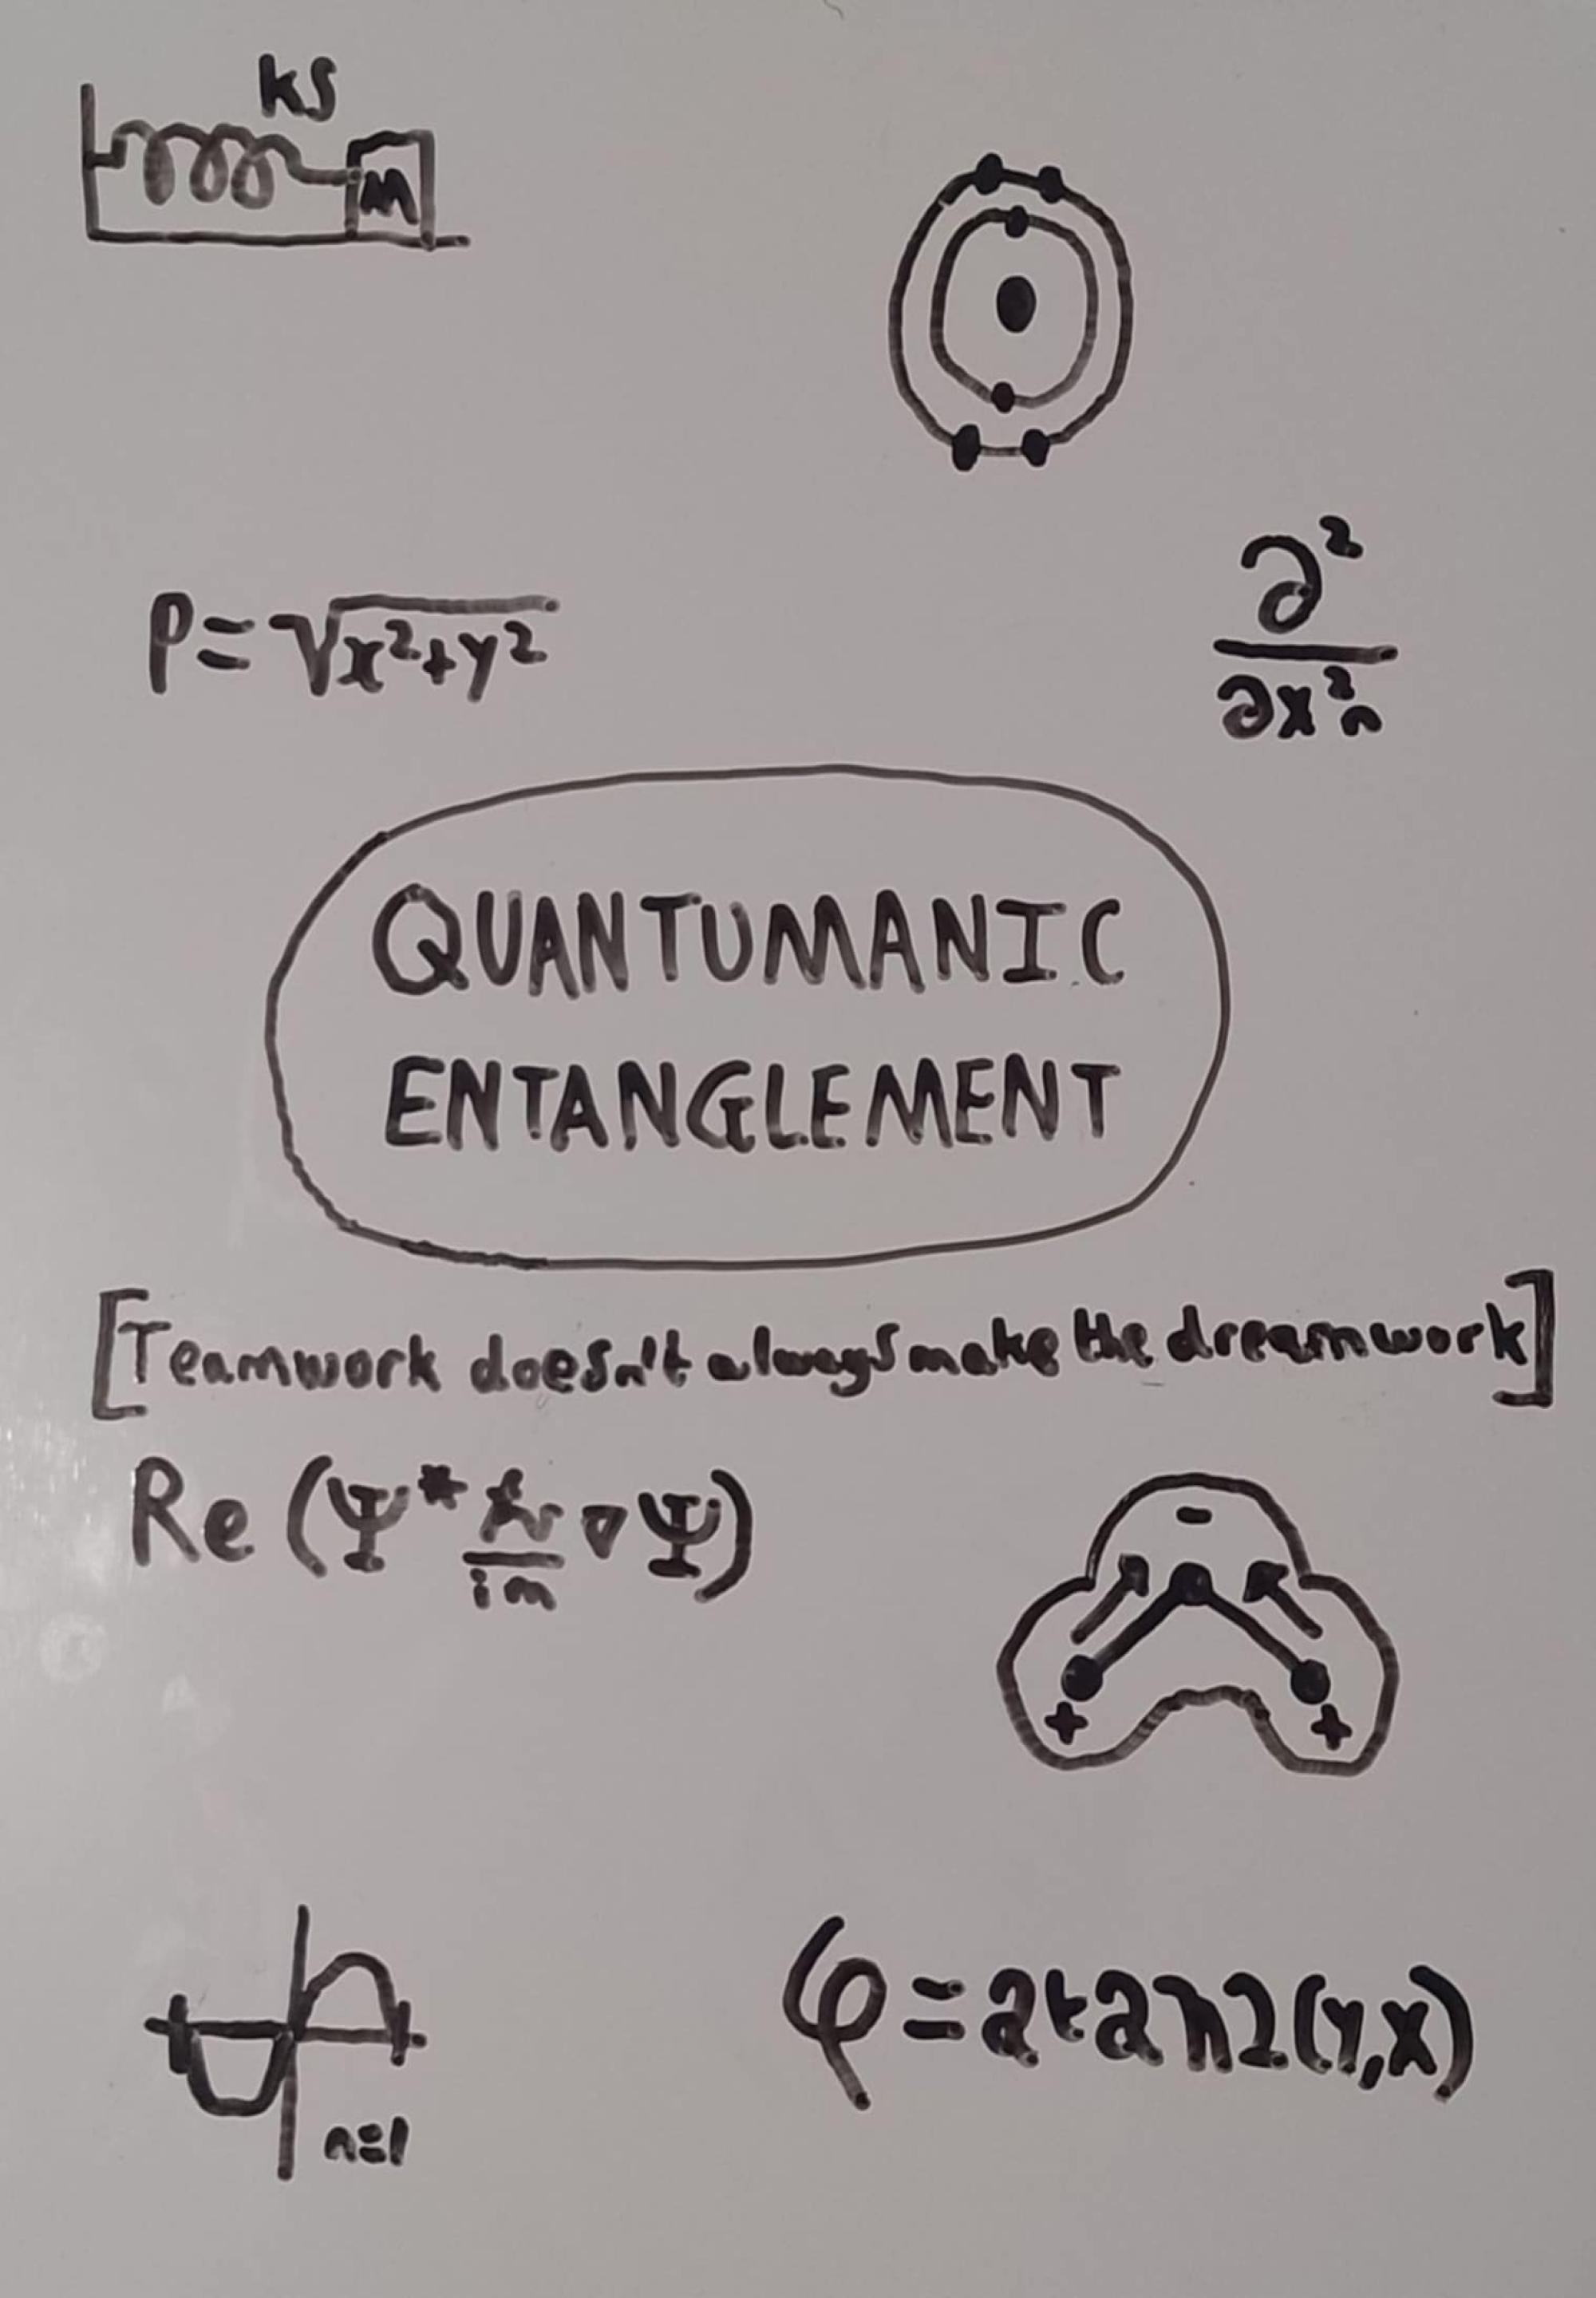 ks
m
ρ=√x²+y²
∂²
∂x²ₙ
QUANTUMANIC
ENTANGLEMENT
[Teamwork doesn't always make the dreamwork]
Re (Ψ* ħ/im ∇Ψ)
-
+ +
n=1
φ=atan2(y,x)